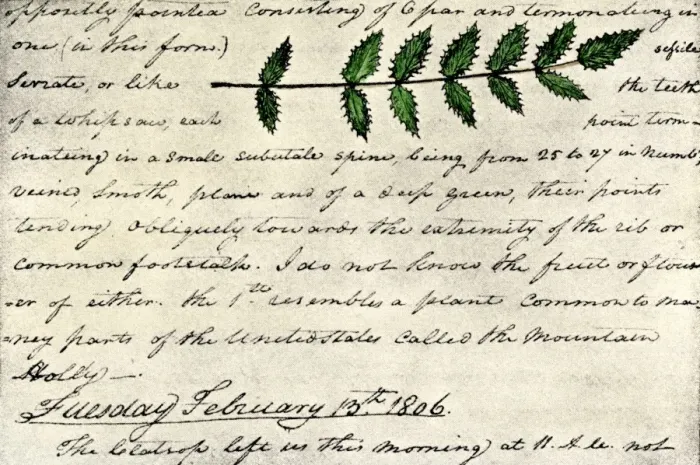 oppositly pointed consisting of 6 par and termonateing in
one (in this form.) sessile
Serrate, or like the teeth
of a whipsaw, each point term-
inateing in a small subulate spine, being from 25 to 27 in numb
veined, smoth, plane and of a deep green, their points
tending obliquely towards the extremity of the rib or
common footstalk. I do not know the fruit or flow
-er of either. the 1st resembles a plant common to ma
-ney parts of the Unitedstates called the Mountain
Holly —.
Tuesday February 13th 1806.
The Clatsop left us this morning at 11. A.M. not